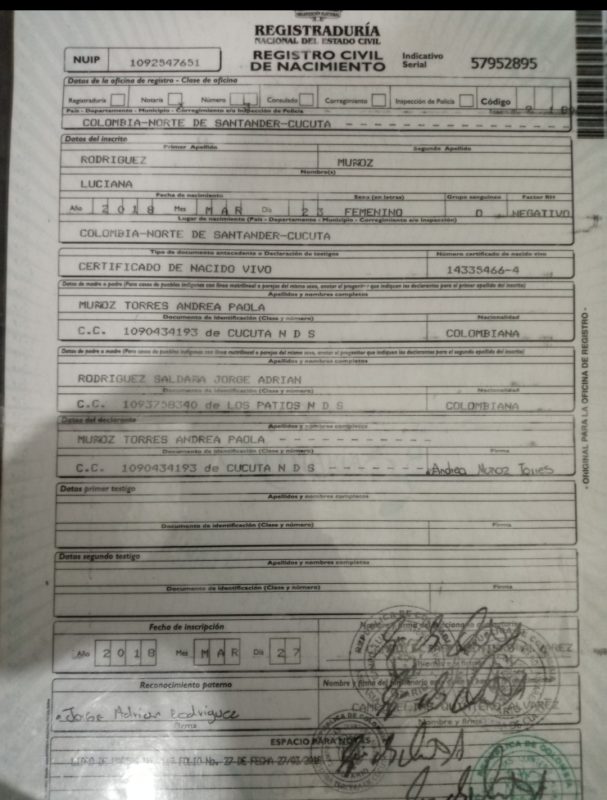 REGISTRADURÍA
NACIONAL DEL ESTADO CIVIL
NUIP 1092547651
REGISTRO CIVIL DE NACIMIENTO
Indicativo Serial 57952895
Datos de la oficina de registro - Clase de oficina
Registraduría Notaría Número Consulado Corregimiento Inspección de Policía Código
País - Departamento - Municipio - Corregimiento e/o Inspección de Policía
COLOMBIA-NORTE DE SANTANDER-CUCUTA
Datos del inscrito
Primer Apellido Segundo Apellido
RODRIGUEZ MUÑOZ
Nombre(s)
LUCIANA
Fecha de nacimiento Sexo (en letras) Grupo sanguíneo Factor RH
Año 2018 Mes MAR Día 23 FEMENINO O NEGATIVO
Lugar de nacimiento (País - Departamento - Municipio - Corregimiento e/o Inspección)
COLOMBIA-NORTE DE SANTANDER-CUCUTA
Tipo de documento antecedente o Declaración de testigos Número certificado de nacido vivo
CERTIFICADO DE NACIDO VIVO 14335466-4
Apellidos y nombres completos
MUÑOZ TORRES ANDREA PAOLA
Documento de Identificación (Clase y número) Nacionalidad
C.C. 1090434193 de CUCUTA N D S COLOMBIANA
Apellidos y nombres completos
RODRIGUEZ SALDAÑA JORGE ADRIAN
Documento de Identificación (Clase y número) Nacionalidad
C.C. 1093758340 de LOS PATIOS N D S COLOMBIANA
Datos del declarante
Apellidos y nombres completos
MUÑOZ TORRES ANDREA PAOLA - - - - - - - - - - -
Documento de identificación (Clase y número) Firma
C.C. 1090434193 de CUCUTA N D S - - - - - - - Andrea Muñoz Torres
Datos primer testigo
Apellidos y nombres completos
Documento de identificación (Clase y número) Firma
Datos segundo testigo
Apellidos y nombres completos
Documento de identificación (Clase y número) Firma
Fecha de inscripción
Año 2018 Mes MAR Día 27
Reconocimiento paterno
Jose Adrian Rodriguez
Firma
Nombre y firma
ESPACIO PARA NOTAS
FOLIO No. 27 DE FECHA 27/03/2018
- ORIGINAL PARA LA OFICINA DE REGISTRO -
REPUBLICA DE COLOMBIA